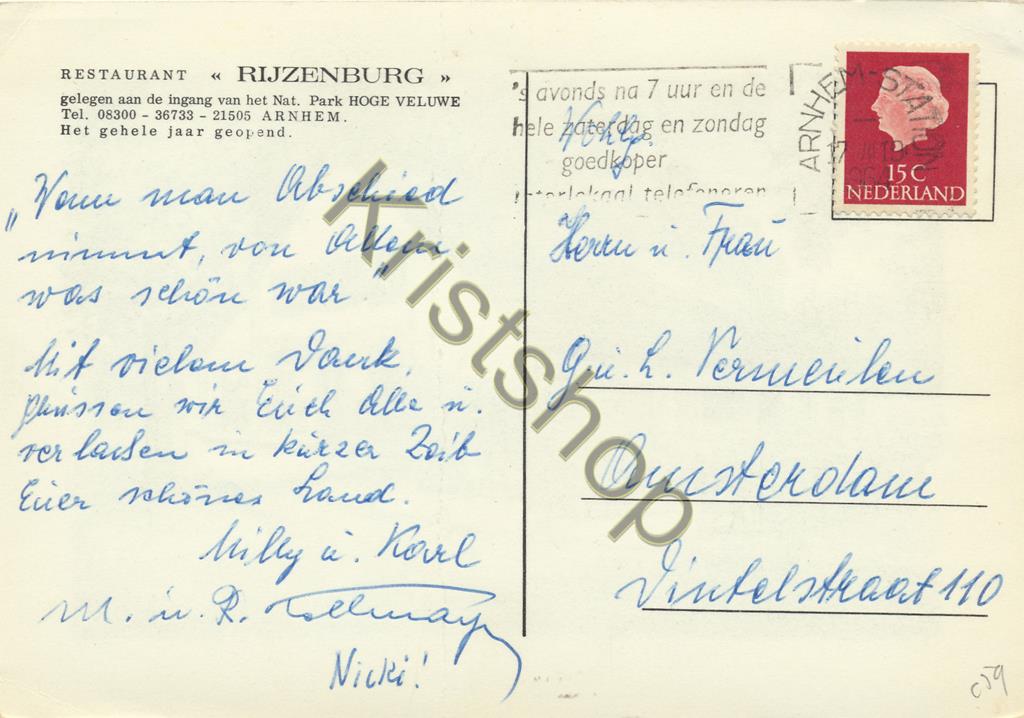 RESTAURANT « RIJZENBURG »
gelegen aan de ingang van het Nat. Park HOGE VELUWE
Tel. 08300 - 36733 - 21505 ARNHEM.
Het gehele jaar geopend.
„Wenn man Abschied
nimmt, von Allem
was schön war."
Mit vielem Dank,
grüssen wir Euch Alle u.
verlassen in kurzer Zeit
Euer schönes Land.
Milly u. Karl
M. u. R.
Nicki!
's avonds na 7 uur en de
hele zaterdag en zondag
goedkoper
interlokaal telefoneren
ARNHEM-STATION
15 C
NEDERLAND
Herrn u. Frau
L. Vermeulen
Amsterdam
Vintelstraat 110
c59
Kristshop